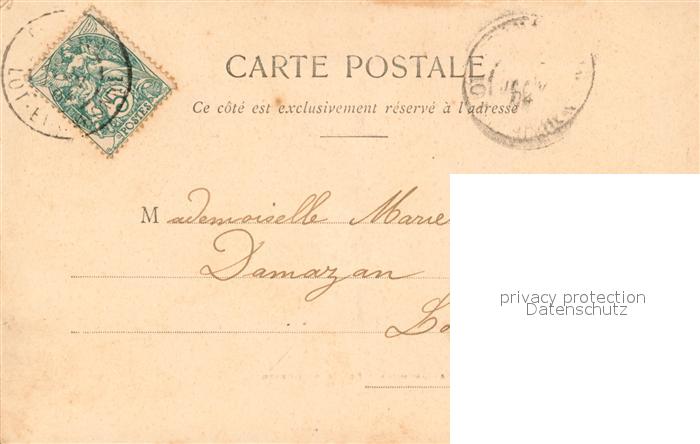 CARTE POSTALE
Ce côté est exclusivement réservé à l'adresse
Mademoiselle Marie
Damazan
Lo
privacy protection
Datenschutz
POSTES
LOT-ET-